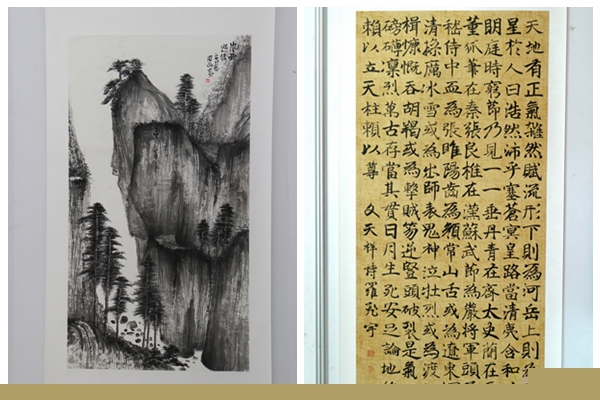 天地有正氣雜然賦流形下則為河岳上則
星於人曰浩然沛乎塞蒼冥皇路當清夷含和
明庭時窮節乃見一一垂丹青在齊太史簡在
董狐筆在秦張良椎在漢蘇武節為嚴將軍頭
嵇侍中血為張睢陽齒為顏常山舌或為遼東
清操厲冰雪或為出師表鬼神泣壯烈或為渡
楫慷慨吞胡羯或為擊賊笏逆豎頭破裂是氣
磅礴凜烈萬古存當其貫日月生死安足論地
賴以立天柱賴以尊 文天祥詩羅飛宇